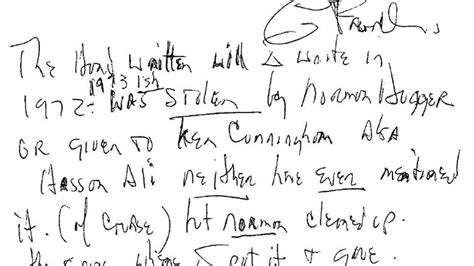 The Hand written will I wrote in
1973 ish
1972: was stolen by Norman Hugger
or given to Ken Cunningham AKA
Hasson Ali neither have ever mentioned
it. (of course) but Norman cleaned up.
the where I put it & gave